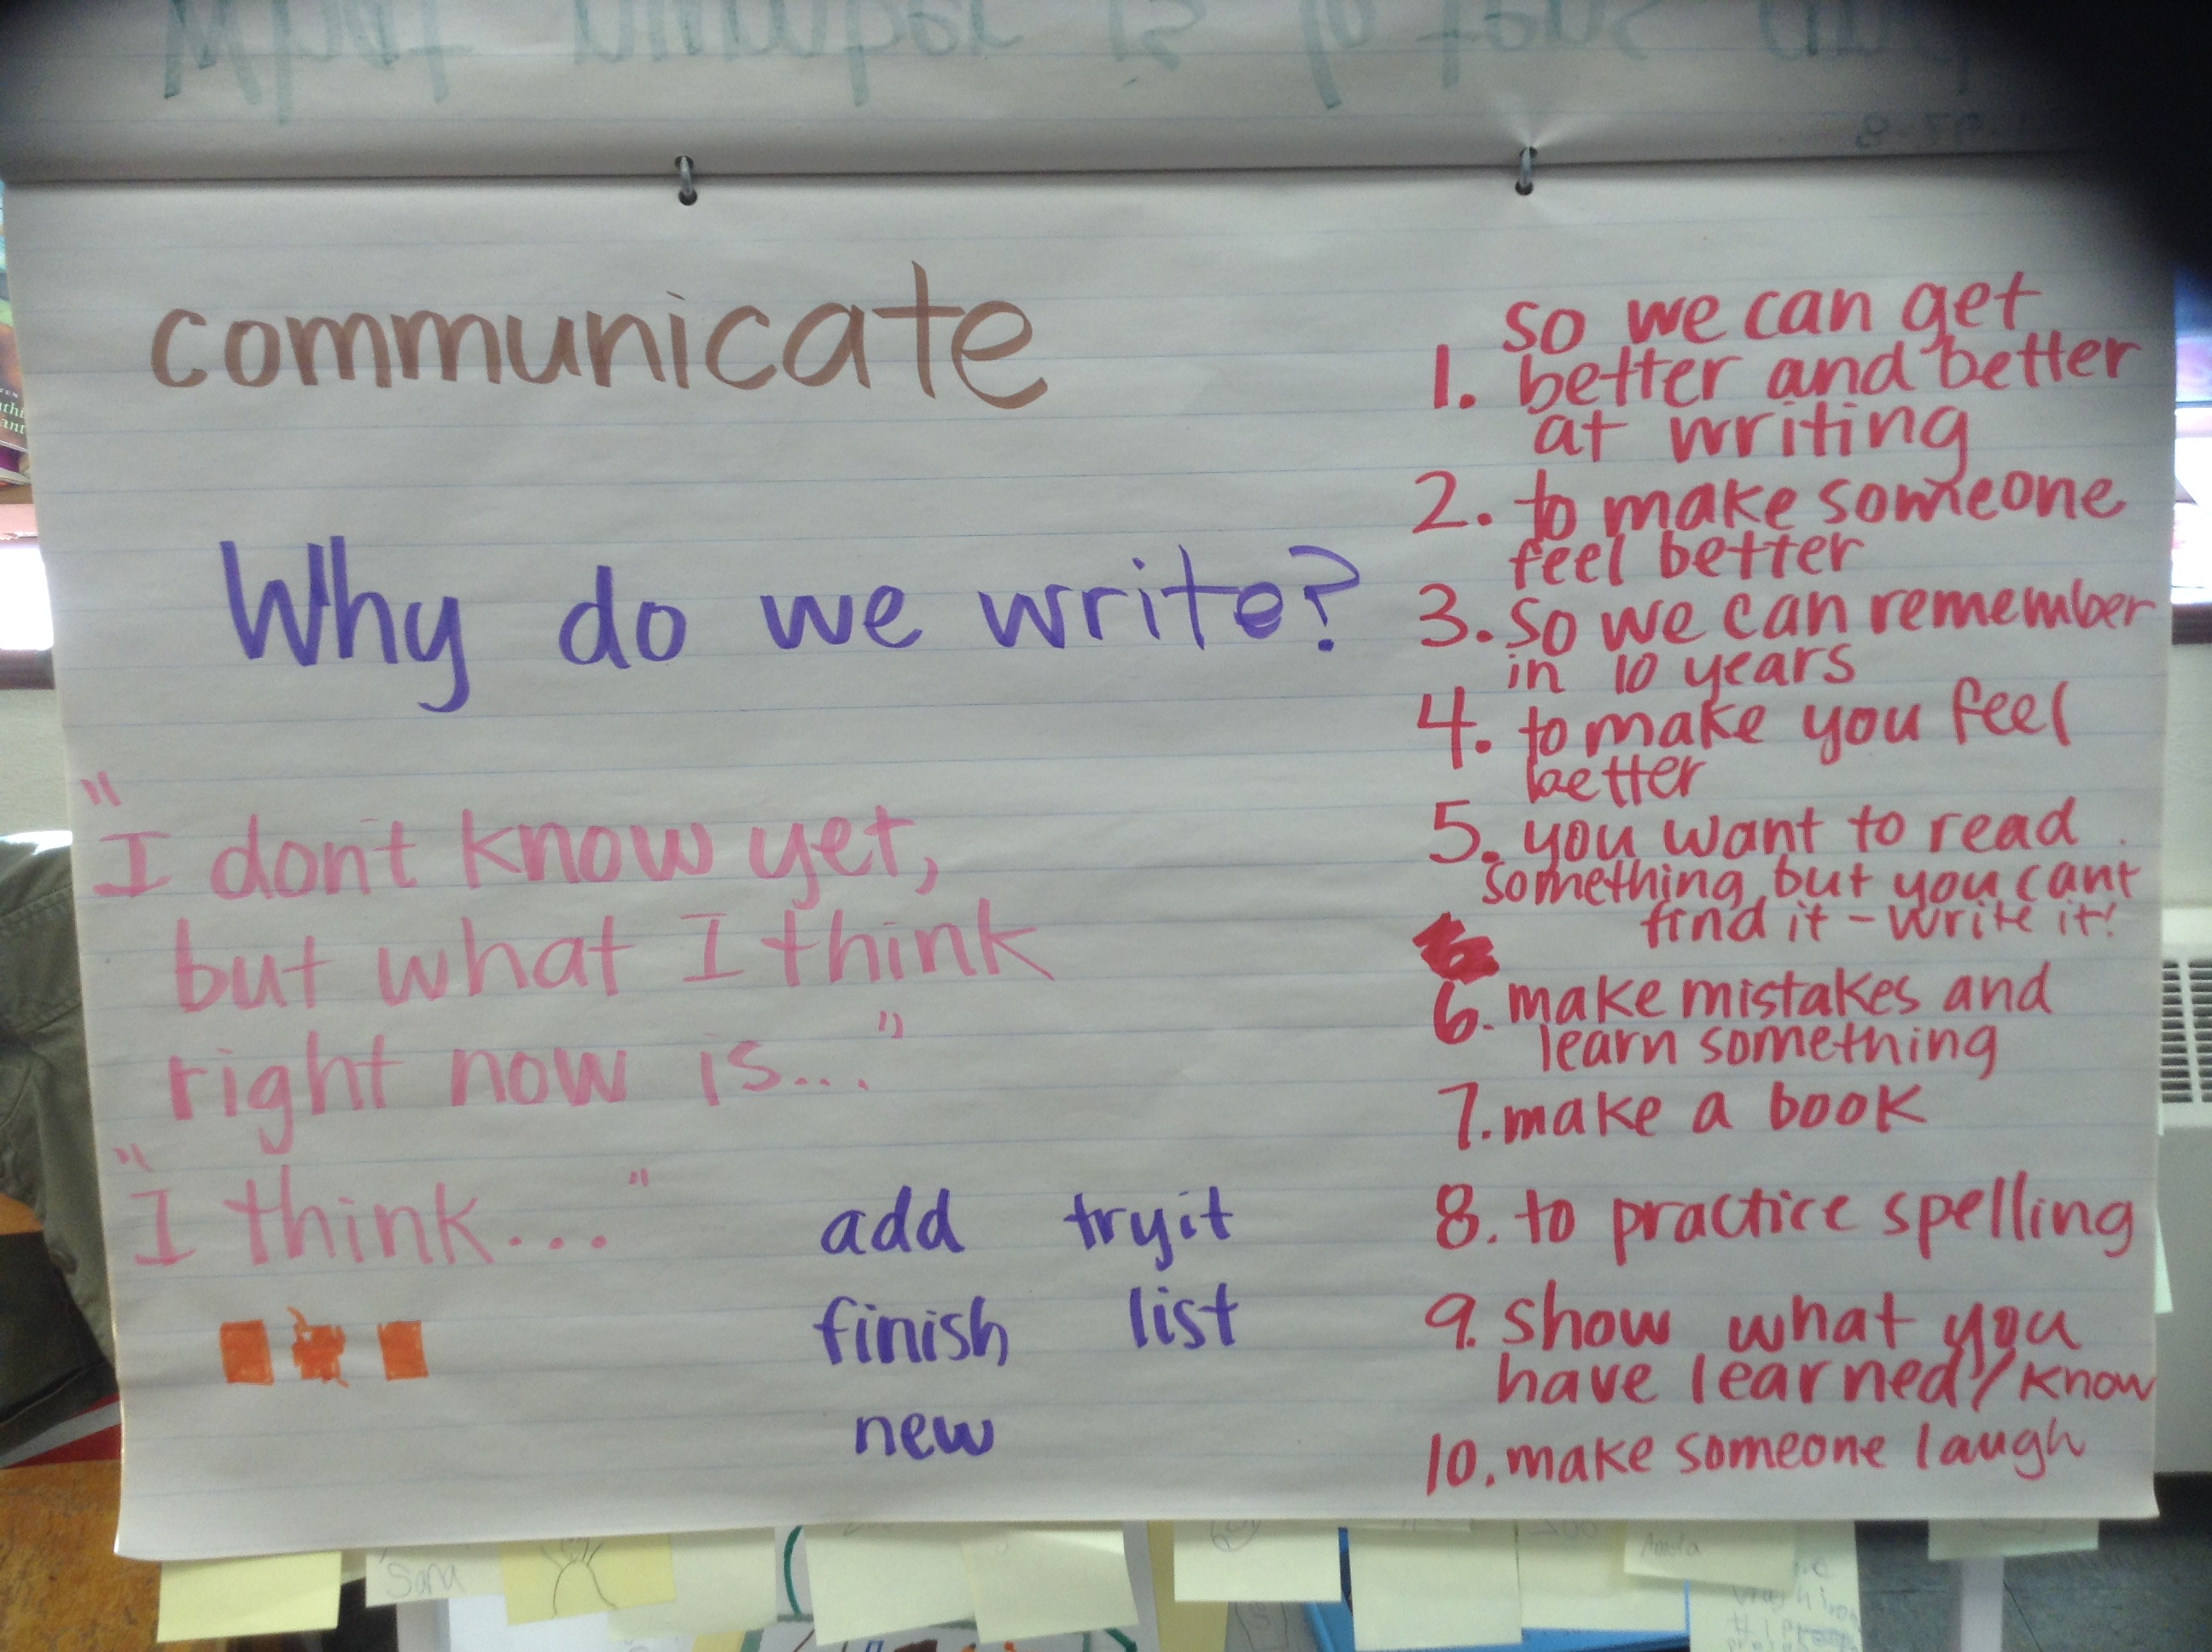 What number is 6 tens and
communicate
Why do we write?
"I don't know yet,
but what I think
right now is..."
"I think..."
add tryit
finish list
new
so we can get
1. better and better
at writing
2. to make someone
feel better
3. so we can remember
in 10 years
4. to make you feel
better
5. you want to read
something but you cant
find it - write it!
6. make mistakes and
learn something
7. make a book
8. to practice spelling
9. show what you
have learned/know
10. make someone laugh
Sara